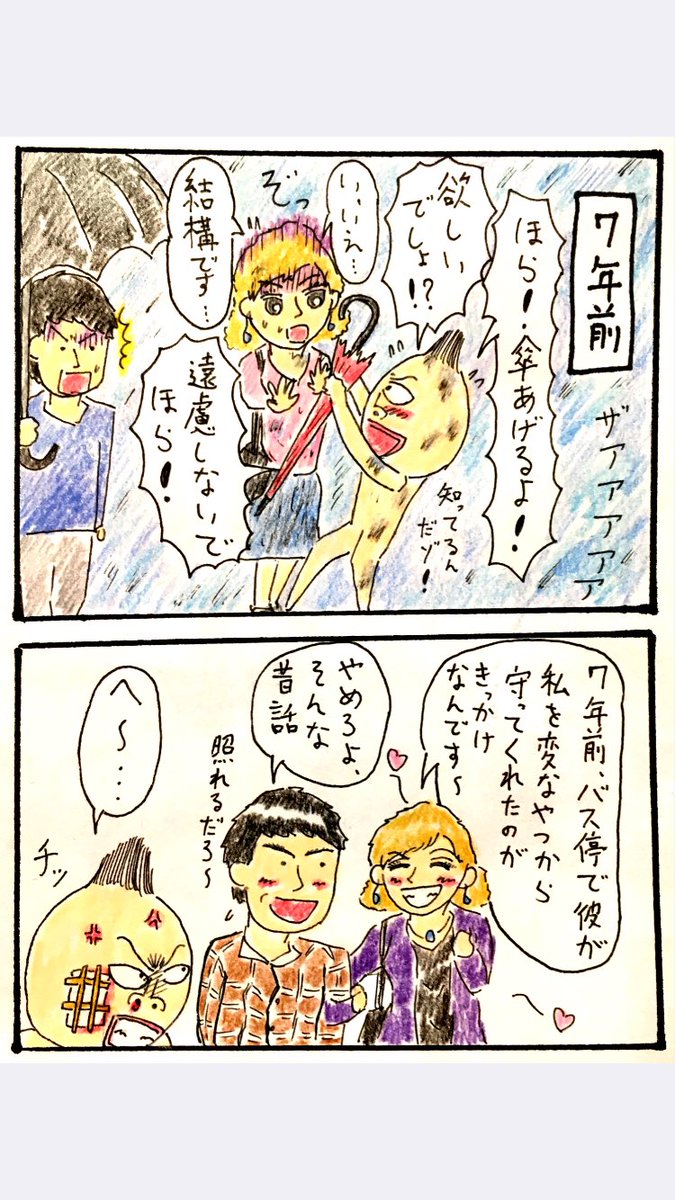 7年前
ほら!傘あげるよ!
ザアアアアア
欲しい
でしょ!?
知ってるん
だゾ!
い、いえ…
ぞっ
結構です…
遠慮しないで
ほら!
7年前、バス停で彼が
私を変なやつから
守ってくれたのが
きっかけ
なんです〜
やめろよ、
そんな
昔話
照れるだろ〜
へ〜…
チッ